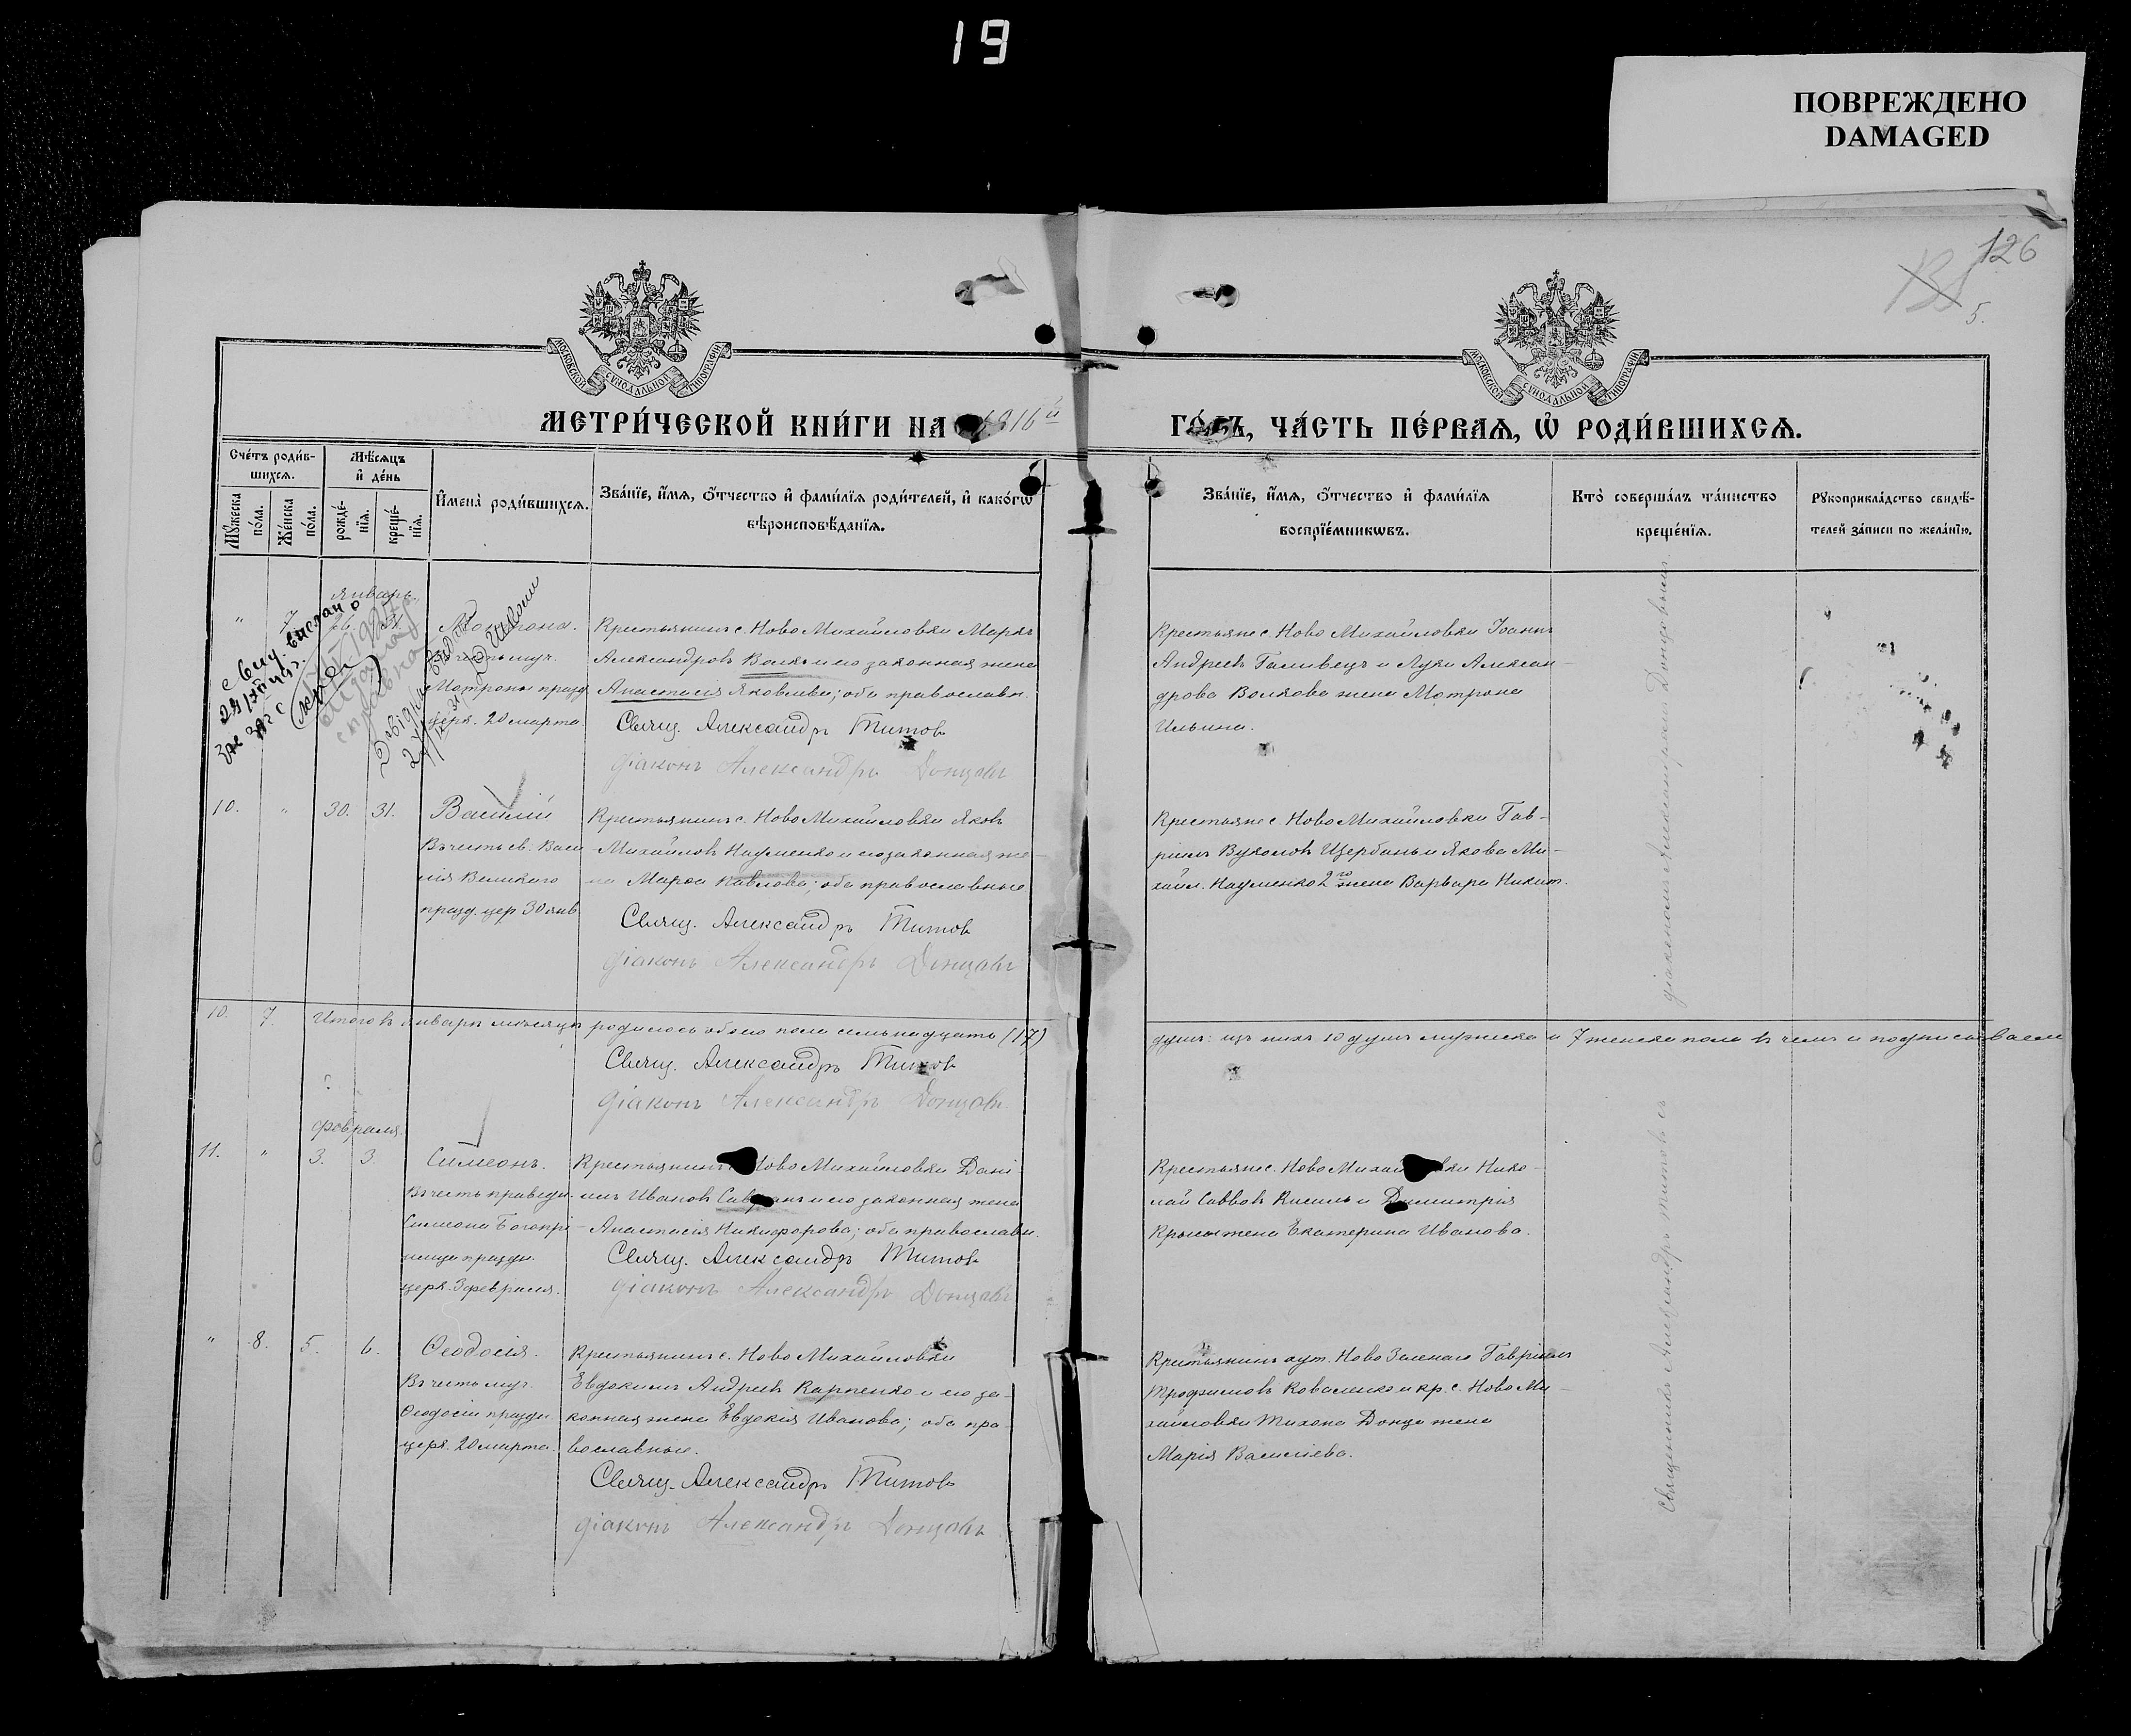 19
ПОВРЕЖДЕНО
DAMAGED
126
5.
МОСКОВСКОЙ СѴНОДАЛЬНОЙ ТИПОГРАФІИ
МОСКОВСКОЙ СѴНОДАЛЬНОЙ ТИПОГРАФІИ
МЕТРИ́ЧЕСКОЙ КНИ́ГИ НА 1916й
ГО́ДЪ, ЧА́СТЬ ПЕ́РВАѦ, Ѡ҆ РОДИ́ВШИХСѦ.
Сче́тъ роди́в-
шихсѧ.
Мꙋ́жеска по́ла.
Же́нска по́ла.
Мѣ́сѧцъ
и҆ де́нь
рожде́-
нїѧ.
креще́-
нїѧ.
И҆мена̀ роди́вшихсѧ.
Зва́нїе, и҆́мѧ, ѻ҆́тчество и҆ фами́лїѧ роди́телей, и҆ како́гѡ
вѣроисповѣ́данїѧ.
Зва́нїе, и҆́мѧ, ѻ҆́тчество и҆ фами́лїѧ
воспрїе́мникѡвъ.
Кто̀ соверша́лъ та́инство
креще́нїѧ.
Рꙋкоприкла́дство свидѣ́-
телей за́писи по жела́нїю.
Январь.
" 7. 26. 31. Матрона.
Въ честь муч.
Матроны празд.
церк. 20 марта
Крестьянинъ с. Ново Михайловки Маркъ
Александровъ Волкъ и его законная жена
Анастасія Яковлева; оба православн.
Свящ. Александръ Титовъ
діаконъ Александръ Донцовъ
Крестьяне с. Ново Михайловки Іоаннъ
Андреевъ Галивецъ и Луки Алексан-
дрова Волкова жена Матрона
Ильина.
10. " 30. 31. Василій
Въ честь св. Васи
лія Великаго
празд. цер 30 янв.
Крестьянинъ с. Ново Михайловки Яковъ
Михайловъ Науменко и его законная же-
на Марѳа Павлова; оба православные
Свящ. Александръ Титовъ
діаконъ Александръ Донцовъ
Крестьяне с. Ново Михайловки Гав-
ріилъ Вуколовъ Щербань и Якова Ми-
хайл. Науменко 2го жена Варвара Никит.
10. 7. Итого въ январѣ мѣсяцѣ родилось обоего пола семьнадцать (17)
душъ: изъ нихъ 10 душъ мужска и 7 женска пола въ чемъ и подписываем
Свящ. Александръ Титовъ
діаконъ Александръ Донцовъ
февраля.
11. " 3. 3. Симеонъ.
Въ честь праведн.
Симеона Богопрі-
имца праздн.
церк. 3 февраля.
Крестьянинъ с. Ново Михайловки Дані-
илъ Ивановъ и его законная жена
Анастасія Никифорова; оба православн.
Свящ. Александръ Титовъ
діаконъ Александръ Донцовъ
Крестьяне с. Ново Михайловки Нико-
лай Саввовъ Кисиль и Димитрія
жена Екатерина Иванова.
" 8. 5. 6. Ѳеодосія.
Въ честь муч.
Ѳеодосіи праздн.
церк. 20 марта.
Крестьянинъ с. Ново Михайловки
Евдокимъ Андреевъ Карпенко и его за-
конная жена Евдокія Иванова; оба пра-
вославные.
Свящ. Александръ Титовъ
діаконъ Александръ Донцовъ
Крестьянинъ хут. Ново Зеленаго Гавріилъ
Трофимовъ Коваленко и кр. с. Ново Ми-
хайловки Тихона Донца жена
Марія Василіева.
Священникъ Александръ Титовъ съ
діакономъ Александромъ Донцовымъ